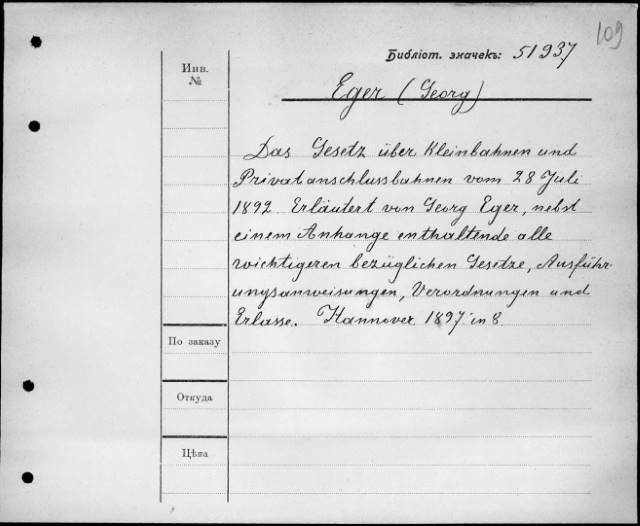 109
Библіот. значекъ: 51937
Инв.
№
Eger (Georg)
Das Gesetz über Kleinbahnen und
Privatanschlussbahnen vom 28 Juli
1892. Erläutert von Georg Eger, nebst
einem Anhange enthaltende alle
wichtigeren bezüglichen Gesetze, Ausführ-
ungsanweisungen, Verordnungen und
Erlasse. Hannover. 1897. in 8.
По заказу
Откуда
Цѣна